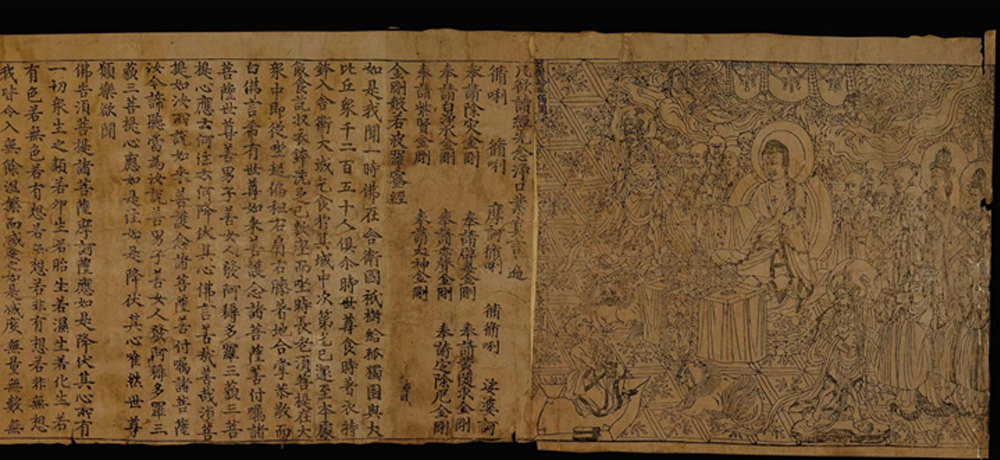 凡欲讀經先念淨口業真言一遍
脩唎 脩唎 摩訶脩唎 脩脩唎 娑婆訶
奉請除灾金剛 奉請辟毒金剛 奉請黃隨求金剛
奉請白淨水金剛 奉請赤聲金剛 奉請定除厄金剛
奉請紫賢金剛 奉請大神金剛
金剛般若波羅蜜經
如是我聞一時佛在舍衛國祇樹給孤獨園與大
比丘衆千二百五十人俱尒時世尊食時著衣持
鉢入舍衛大城乞食於其城中次第乞已還至本處
飯食訖収衣鉢洗足已敷座而坐時長老須菩提在大
衆中即從座起偏袒右肩右膝著地合掌恭敬而
白佛言希有世尊如來善護念諸菩薩善付囑諸
菩薩世尊善男子善女人發阿耨多羅三藐三菩
提心應云何住云何降伏其心佛言善哉善哉須菩
提如汝所說如來善護念諸菩薩善付囑諸菩薩
汝今諦聽當為汝說善男子善女人發阿耨多羅三
藐三菩提心應如是住如是降伏其心唯然世尊
願樂欲聞
佛告須菩提諸菩薩摩訶薩應如是降伏其心所有
一切衆生之類若卵生若胎生若濕生若化生若
有色若無色若有想若無想若非有想若非無想
我皆令入無餘涅槃而滅度之如是滅度無量無數無